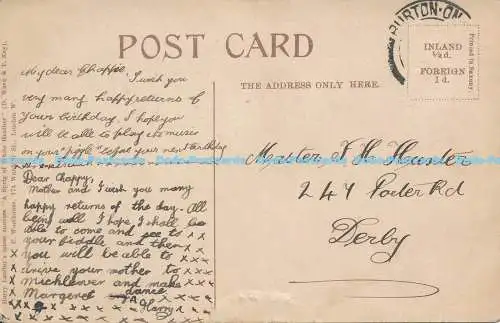 POST CARD
BURTON-ON
INLAND
½d.
FOREIGN
1d.
Printed in Saxony
THE ADDRESS ONLY HERE.
My dear Chappie
I wish you
very many happy returns of
Your birthday. I hope you
will be able to play us music
on your before your next Birthday
Dear Chappy,
Mother and I wish you many
happy returns of the day. All
being well I hope I shall be
able to come and see to x x
your biddle and then x x
you will be able to x x
drive your mother to x
Mickleover and make x
Margeret dance
Harry
Master J H Hunter
247 Rd
Derby